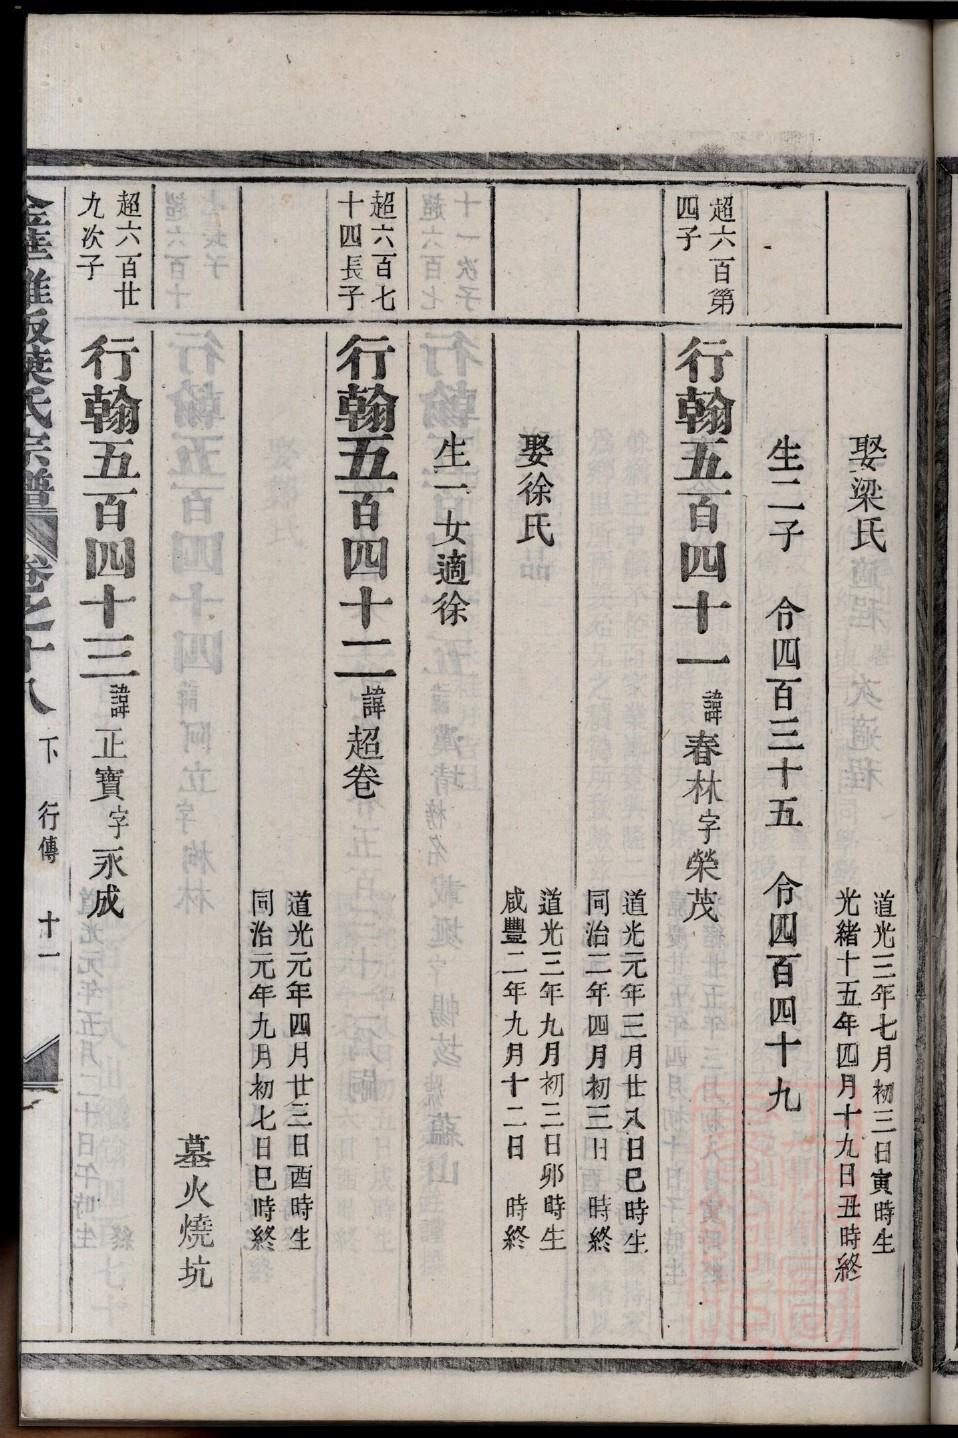 娶梁氏
道光三年七月初三日寅時生
光緒十五年四月十九日丑時終
生二子 令四百三十五 令四百四十九
超六百第
四子
行翰五百四十一 諱春林字榮茂
道光元年三月廿八日巳時生
同治二年四月初三日 時終
娶徐氏
道光三年九月初三日卯時生
咸豐二年九月十二日 時終
生一女適徐
超六百七
十四長子
行翰五百四十二 諱超卷
道光元年四月廿三日酉時生
同治元年九月初七日巳時終
墓火燒坑
超六百廿
九次子
行翰五百四十三 諱正寶字永成
葉氏宗譜 卷之十八 下 行傳 十一